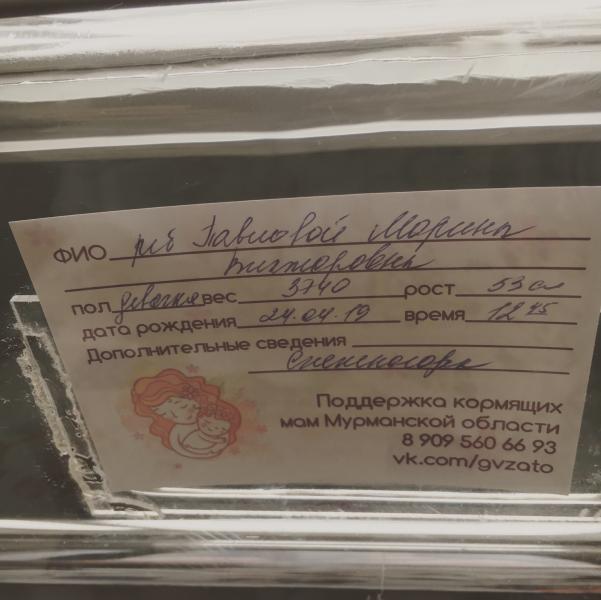 ФИО р-б Павловой Марины
Викторовны
пол девочка вес 3740 рост 53 см
дата рождения 24.04.19 время 12 45
Дополнительные сведения
Снежногорск
Поддержка кормящих
мам Мурманской области
8 909 560 66 93
vk.com/gvzato